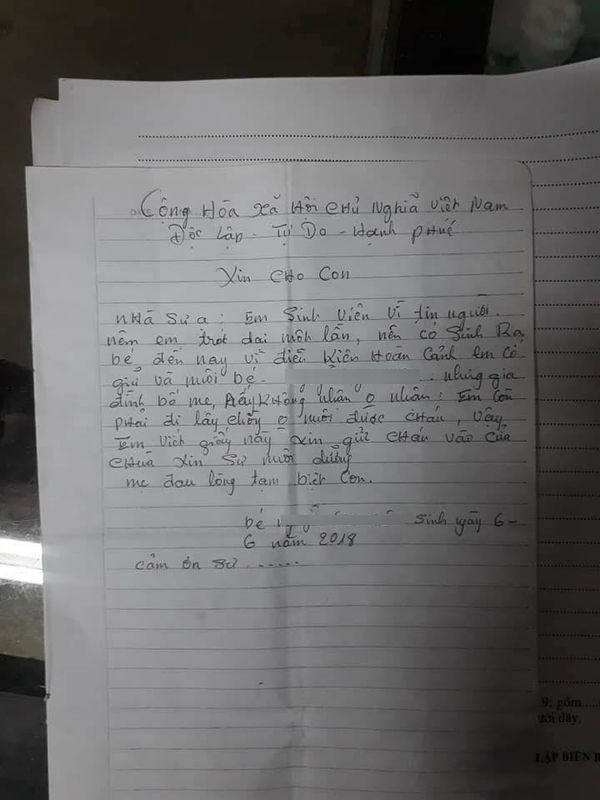 Cộng Hòa Xã Hội Chủ Nghĩa Việt Nam
Độc Lập - Tự Do - Hạnh Phúc
Xin Cho Con
Nhà Sư ạ: Em Sinh Viên Vì tin người.
nên em trót dại một lần, nên có Sinh Ra
bé đến nay vì điều Kiện Hoàn Cảnh em cố
giữ và nuôi bé. ... nhưng gia
đình bố mẹ, Ấy không nhận o nhận: Em còn
phải đi lấy chồng o nuôi được cháu, vậy
Em viết giấy này xin gửi cháu vào cửa
chùa xin Sư nuôi dưỡng
mẹ đau lòng tạm biệt con.
bé Sinh ngày 6-
6 năm 2018
cảm ơn sư ......
9; gồm.....
ưới đây.
LẬP BIÊN B